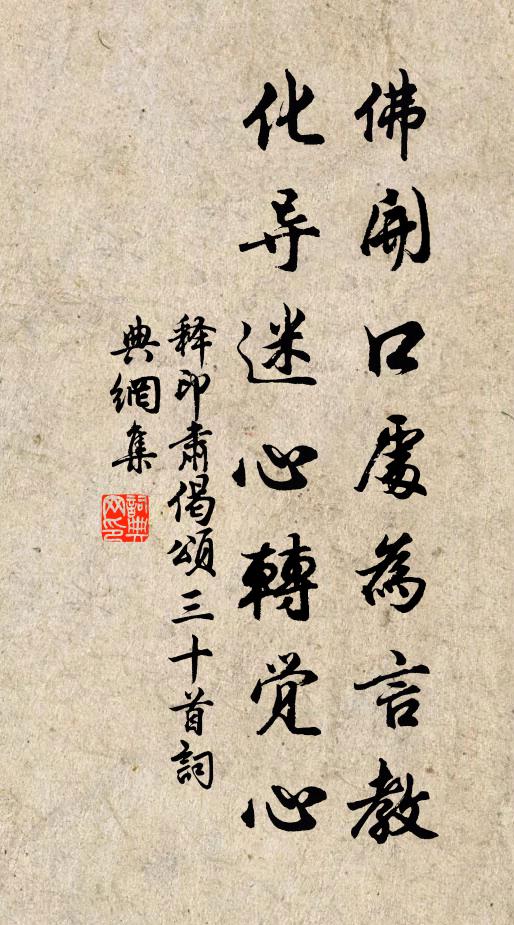 佛開口處為言教
化导迷心轉觉心
释印肃偈頌三十首詞
典網集
詞典
网印